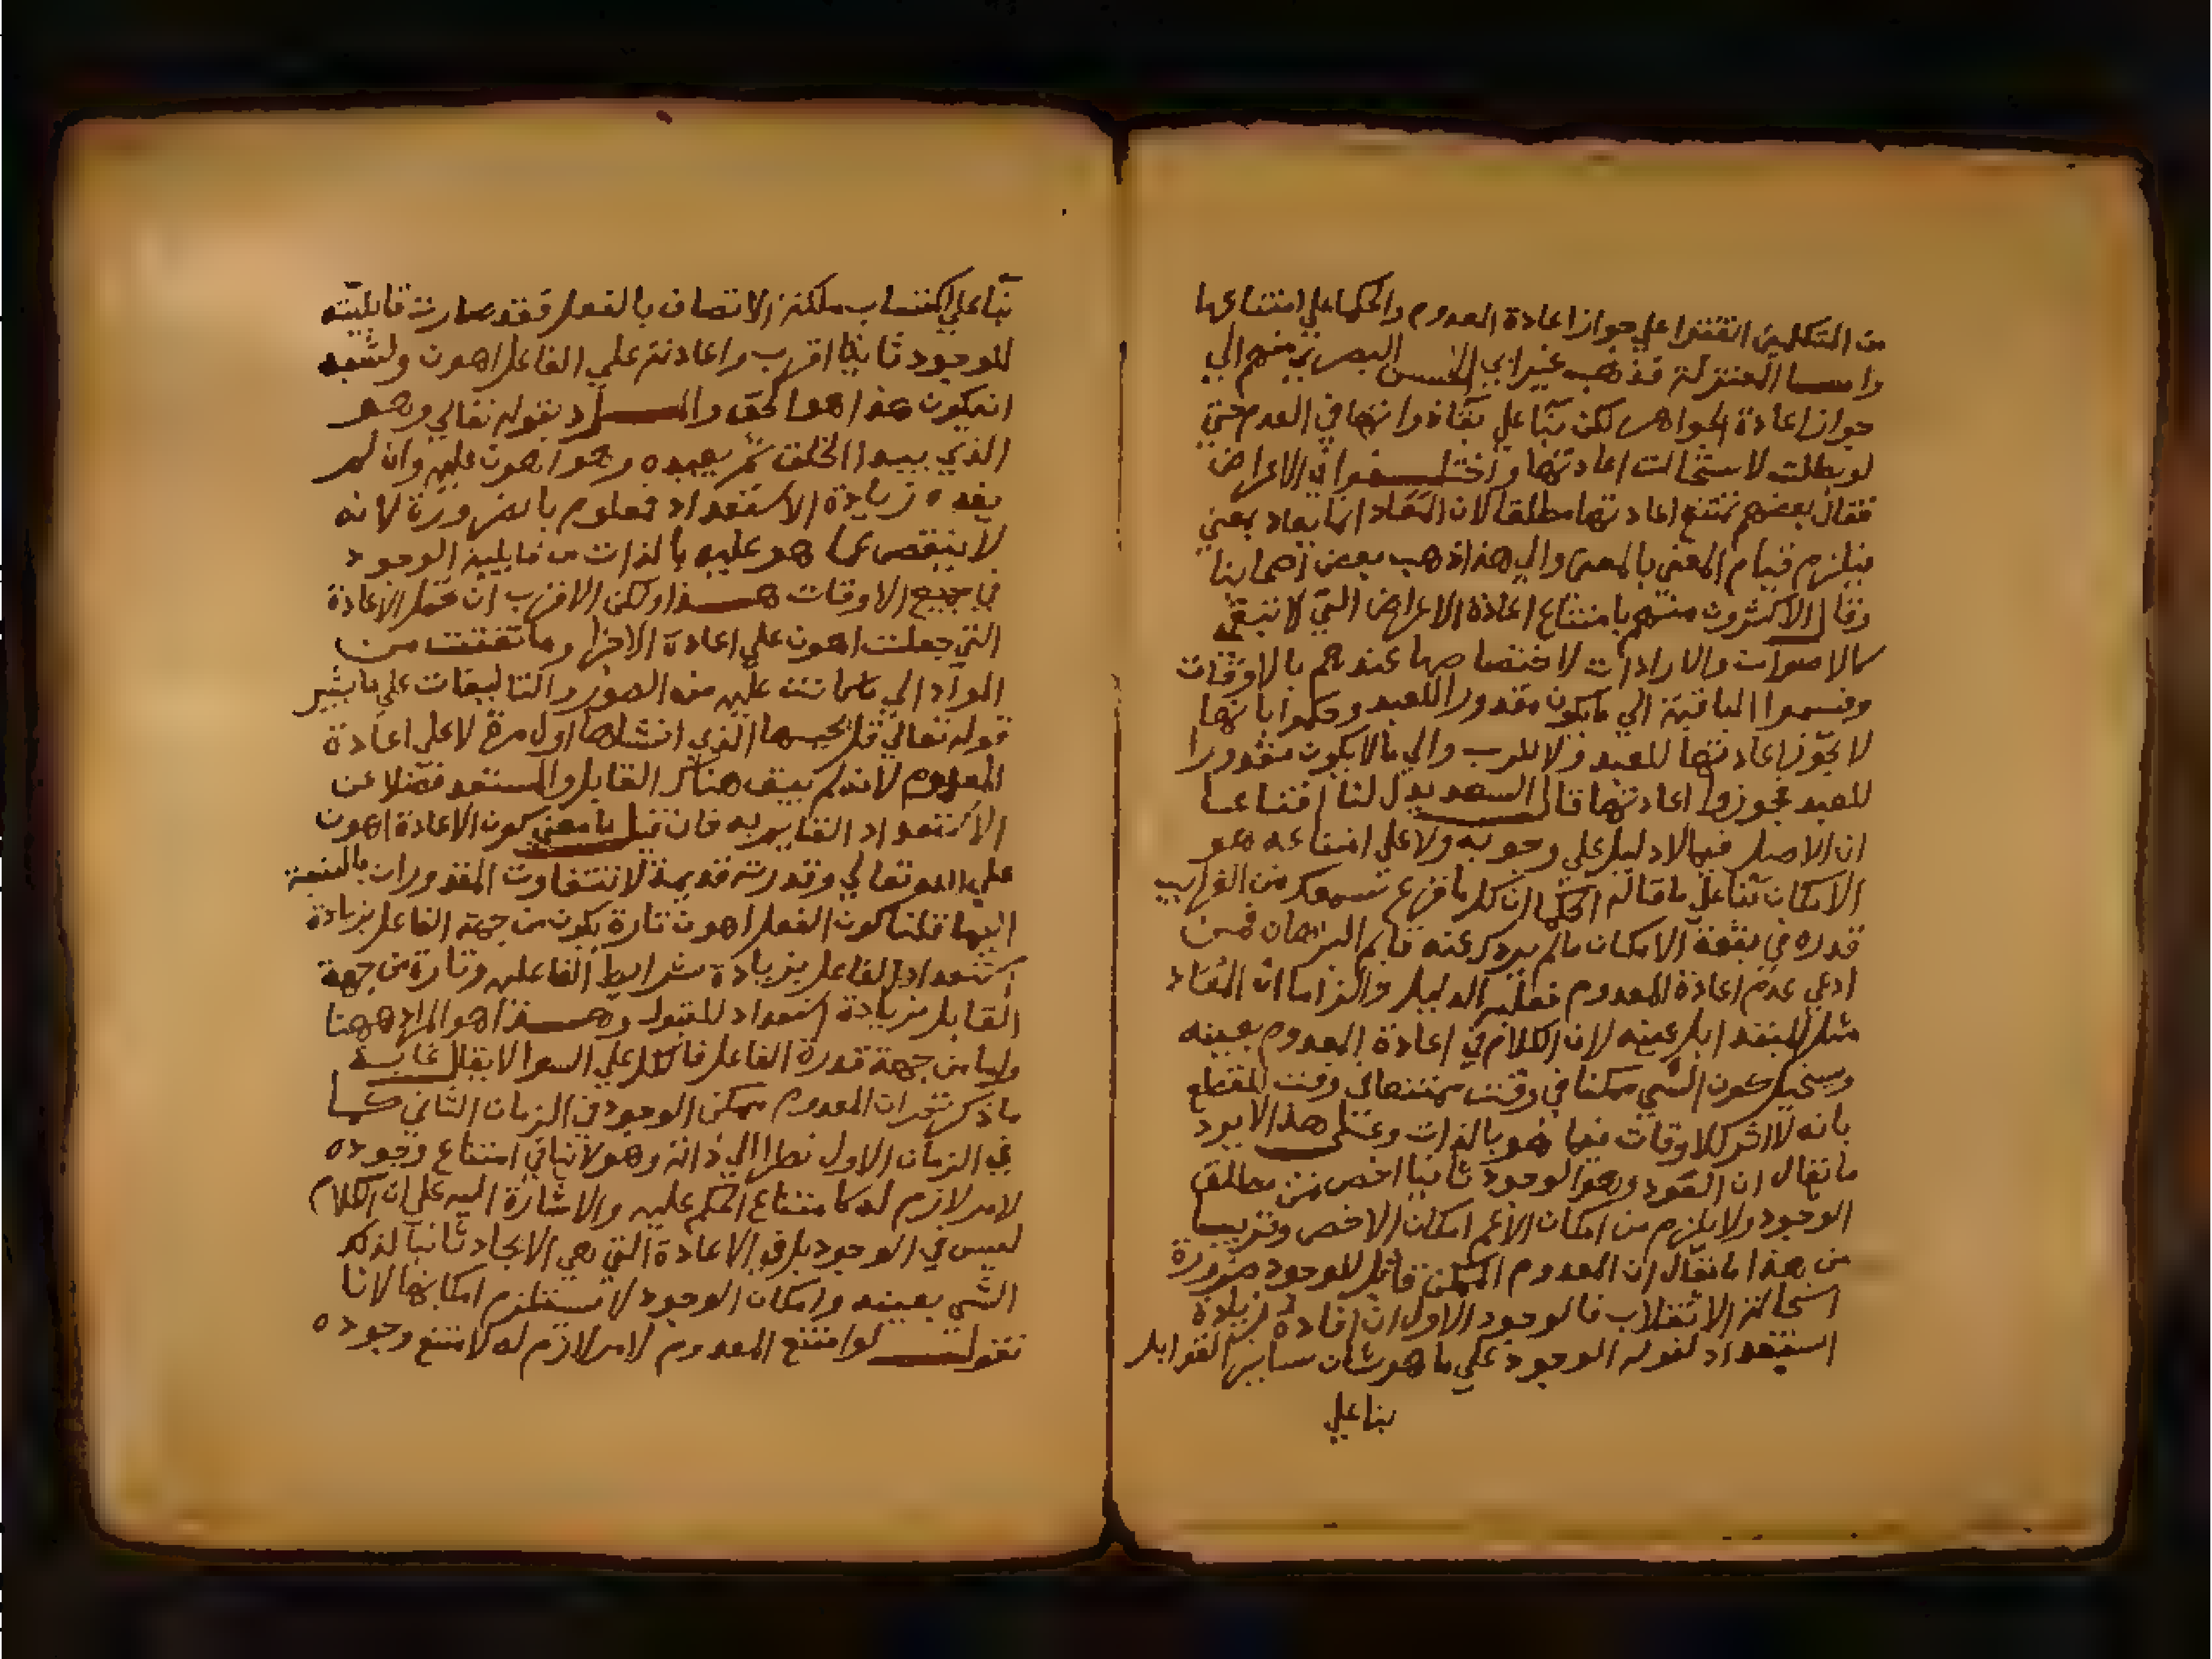 من المتكلمين اتفقوا علي جواز اعادة المعدوم والحكما علي امتناعها
واما المعتزلة فذهب غير ابي الحسن البصري منهم الي
جواز اعادة الجواهر لكن بنا علي بقاذواتها في العدم حتي
لو بطلت لاستحالت اعادتها واختلفوا في الاعراض
فقال بعضهم تمتنع اعادتها مطلقا لان المعاد انما يعاد بمعني
فيلزم قيام المعني بالمعني والي هذا ذهب بعض اصحابنا
وقال الاكثرون منهم بامتناع اعادة الاعراض التي لا تبقي
كالاصوات والارادات لاختصاصها عندهم بالاوقات
وقسموا الباقية الي ما يكون مقدورا للعبد وحكموا بانها
لا يجوز اعادتها للعبد ولا للرب والي ما لا يكون مقدورا
للعبد وجوزوا اعادتها قال السعد يدل لنا اقناعا
ان الاصل فيما لا دليل علي وجوبه ولا علي امتناعه هو
الامكان بنا علي ما قاله الحكما ان كل ما قرع سمعك من الغرايب
فذره في بقعة الامكان ما لم يردك عنه قايم البرهان فمن
ادعي عدم اعادة المعدوم فعليه الدليل والزاما ان المعاد
مثل المبتدا بل عينه لان الكلام في اعادة المعدوم بعينه
ويستحيل كون الشي ممكنا في وقت ممتنعا في وقت للقطع
بانه لا اثر للاوقات فيما هو بالذات وعلي هذا لا يرد
ما يقال ان العود وهو الوجود ثانيا اخص من مطلق
الوجود ولا يلزم من امكان الاعم امكان الاخص وقريب
من هذا ما يقال ان المعدوم الممكن قابل للوجود ضرورة
استحالة الانقلاب فالوجود الاول ان افاده زيادة
استعداد لقوله الوجود علي ما هو شان ساير القوابل
بنا علي
بنا علي اكتساب ملكة الاتصاف بالفعل فقد صارت قابليته
للوجود ثانيا اقرب واعادته علي الفاعل اهون ويشبه
ان يكون هذا هو الحق والمراد بقوله تعالي وهو
الذي يبدا الخلق ثم يعيده وهو اهون عليه وان لم
يفده زيادة الاستعداد فمعلوم بالضرورة لانه
لا ينقص عما هو عليه بالذات من قابلية الوجود
في جميع الاوقات هذا ولكن الاقرب ان تحمل الاعادة
التي جعلت اهون علي اعادة الاجزا وما تفتت من
المواد الي ما كانت عليه من الصور والتاليفات علي ما يشير
قوله تعالي قل يحييها الذي انشاها اول مرة لا علي اعادة
المعدوم لانه لم يبق هناك القابل والمستعد فضلا عن
الاستعداد القايم به فان قيل ما معني كون الاعادة اهون
علي الله تعالي وقدرته قديمة لا تتفاوت المقدورات بالنسبة
اليها قلنا كون الفعل اهون تارة يكون من جهة الفاعل بزيادة
استعداد الفاعل بزيادة شرايط الفاعليه وتارة من جهة
القابل بزيادة استعداد للقبول وهذا هو المراد ههنا
واما من جهة قدرة الفاعل فالكل علي السوا لا يقال غاية
ما ذكرتم ان المعدوم ممكن الوجود في الزمان الثاني كما
في الزمان الاول نظرا الي ذاته وهو لا ينافي امتناع وجوده
لامر لازم له كامتناع الحكم عليه والاشارة اليه علي ان الكلام
ليس في الوجود بل في الاعادة التي هي الايجاد ثانيا لذلك
الشي بعينه وامكان الوجود لا يستلزم امكانها لانا
نقول لو امتنع المعدوم لامر لازم له لامتنع وجوده